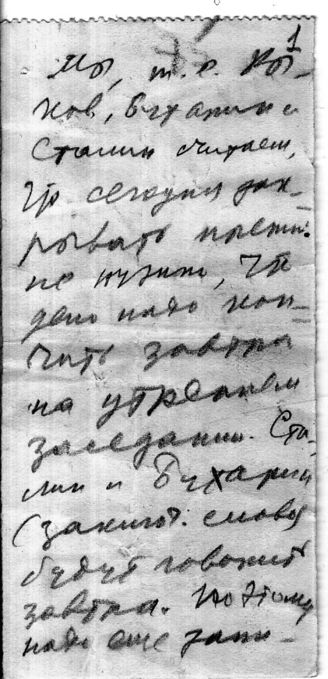 1
Мы, т. е. Ры-
ков, Бухарин и
Сталин считаем,
что сегодня зак-
рывать прения
не нужно, что
дело надо кон-
чить завтра
на утреннем
заседании. Ста-
лин и Бухарин
(заключ. слово)
будут говорить
завтра. Поэтому
надо еще запи-